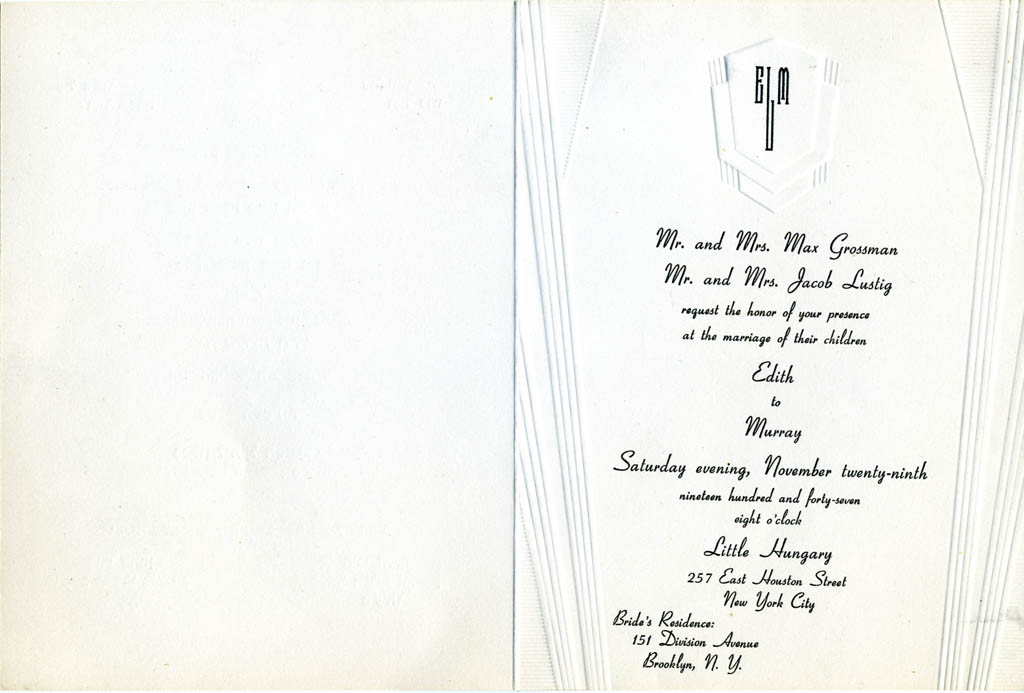 ELM
Mr. and Mrs. Max Grossman
Mr. and Mrs. Jacob Lustig
request the honor of your presence
at the marriage of their children
Edith
to
Murray
Saturday evening, November twenty-ninth
nineteen hundred and forty-seven
eight o'clock
Little Hungary
257 East Houston Street
New York City
Bride's Residence:
151 Division Avenue
Brooklyn, N. Y.